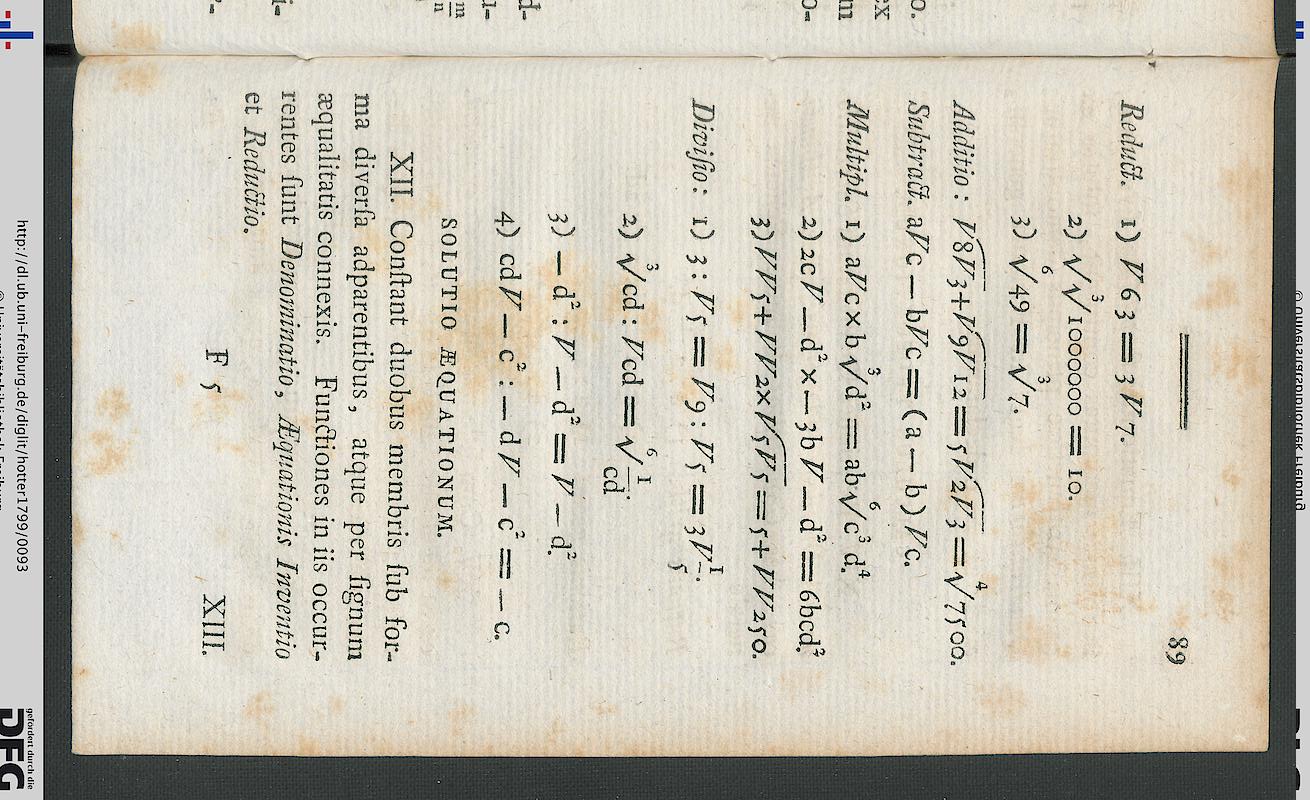 89
Reduct. 1) √63 = 3√7.
2) √∛1000000 = 10.
3) ⁶√49 = ³√7.
Additio: √8√3+√9√12=5√2√3=⁴√7500.
Subtract. a√c — b√c = (a — b) √c.
Multipl. 1) a√c × b³√d² = ab⁶√c³ d⁴.
2) 2c√ — d² × — 3b√ — d² = 6bcd².
3) √√5+√√2×√5√5=5+√√250.
Diviſio: 1) 3 : √5 = √9 : √5 = 3√1/5.
2) ³√cd : √cd = ⁶√1/cd.
3) — d² : √ — d² = √ — d².
4) cd√ — c² : — d√ — c² = — c.
SOLUTIO ÆQUATIONUM.
XII. Conſtant duobus membris ſub for-
ma diverſa adparentibus, atque per ſignum
æqualitatis connexis. Functiones in iis occur-
rentes ſunt Denominatio, Æquationis Inventio
et Reductio.
F 5
XIII.
http://dl.ub.uni-freiburg.de/diglit/hotter1799/0093
gefördert durch die
DFG